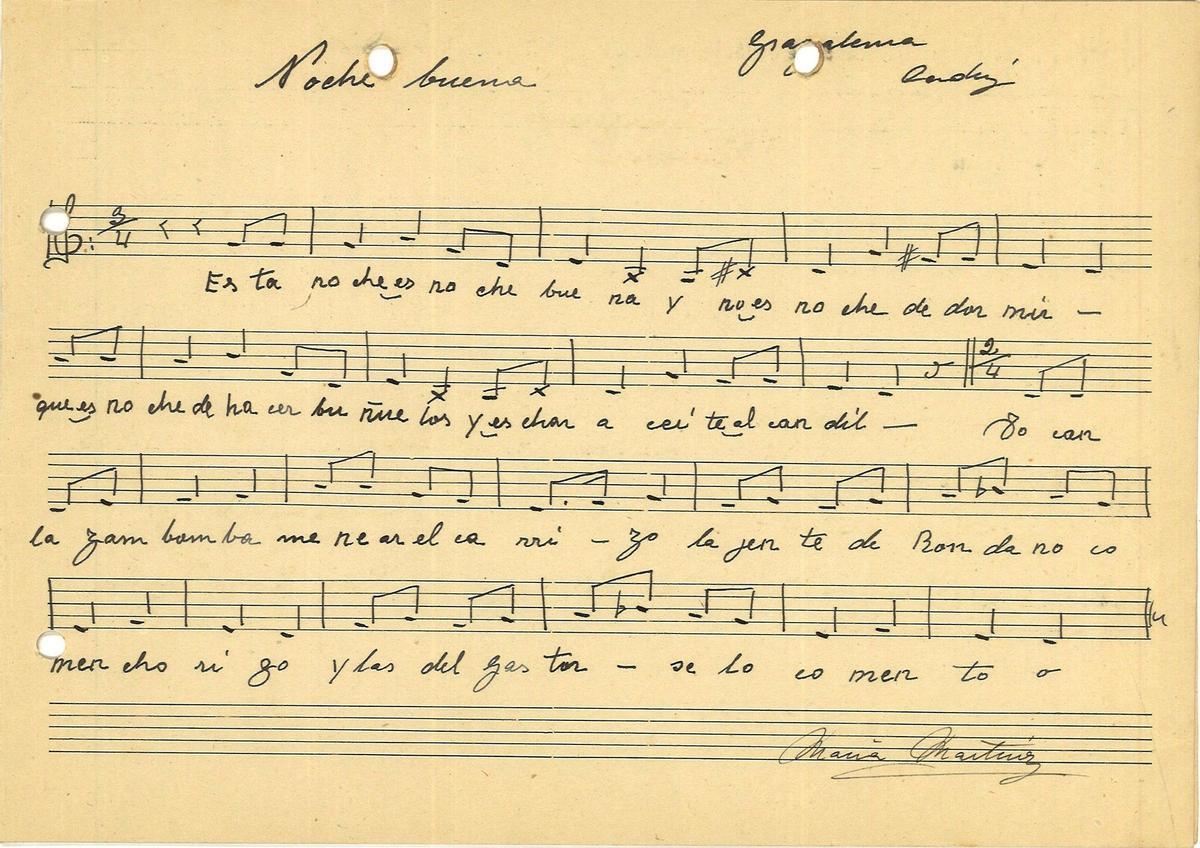 Noche buena
Grazalema
Cadiz
3/4
Es ta no che es no che bue na y no es no che de dor mir —
2/4
que es no che de ha cer bu ñue los y es char a cei te al can dil — To can
la zam bom ba me ne ar el ca rri – zo la jen te de Ron da no co
men cho ri zo y las del gas tor – se lo co men to o
Maria Martinez